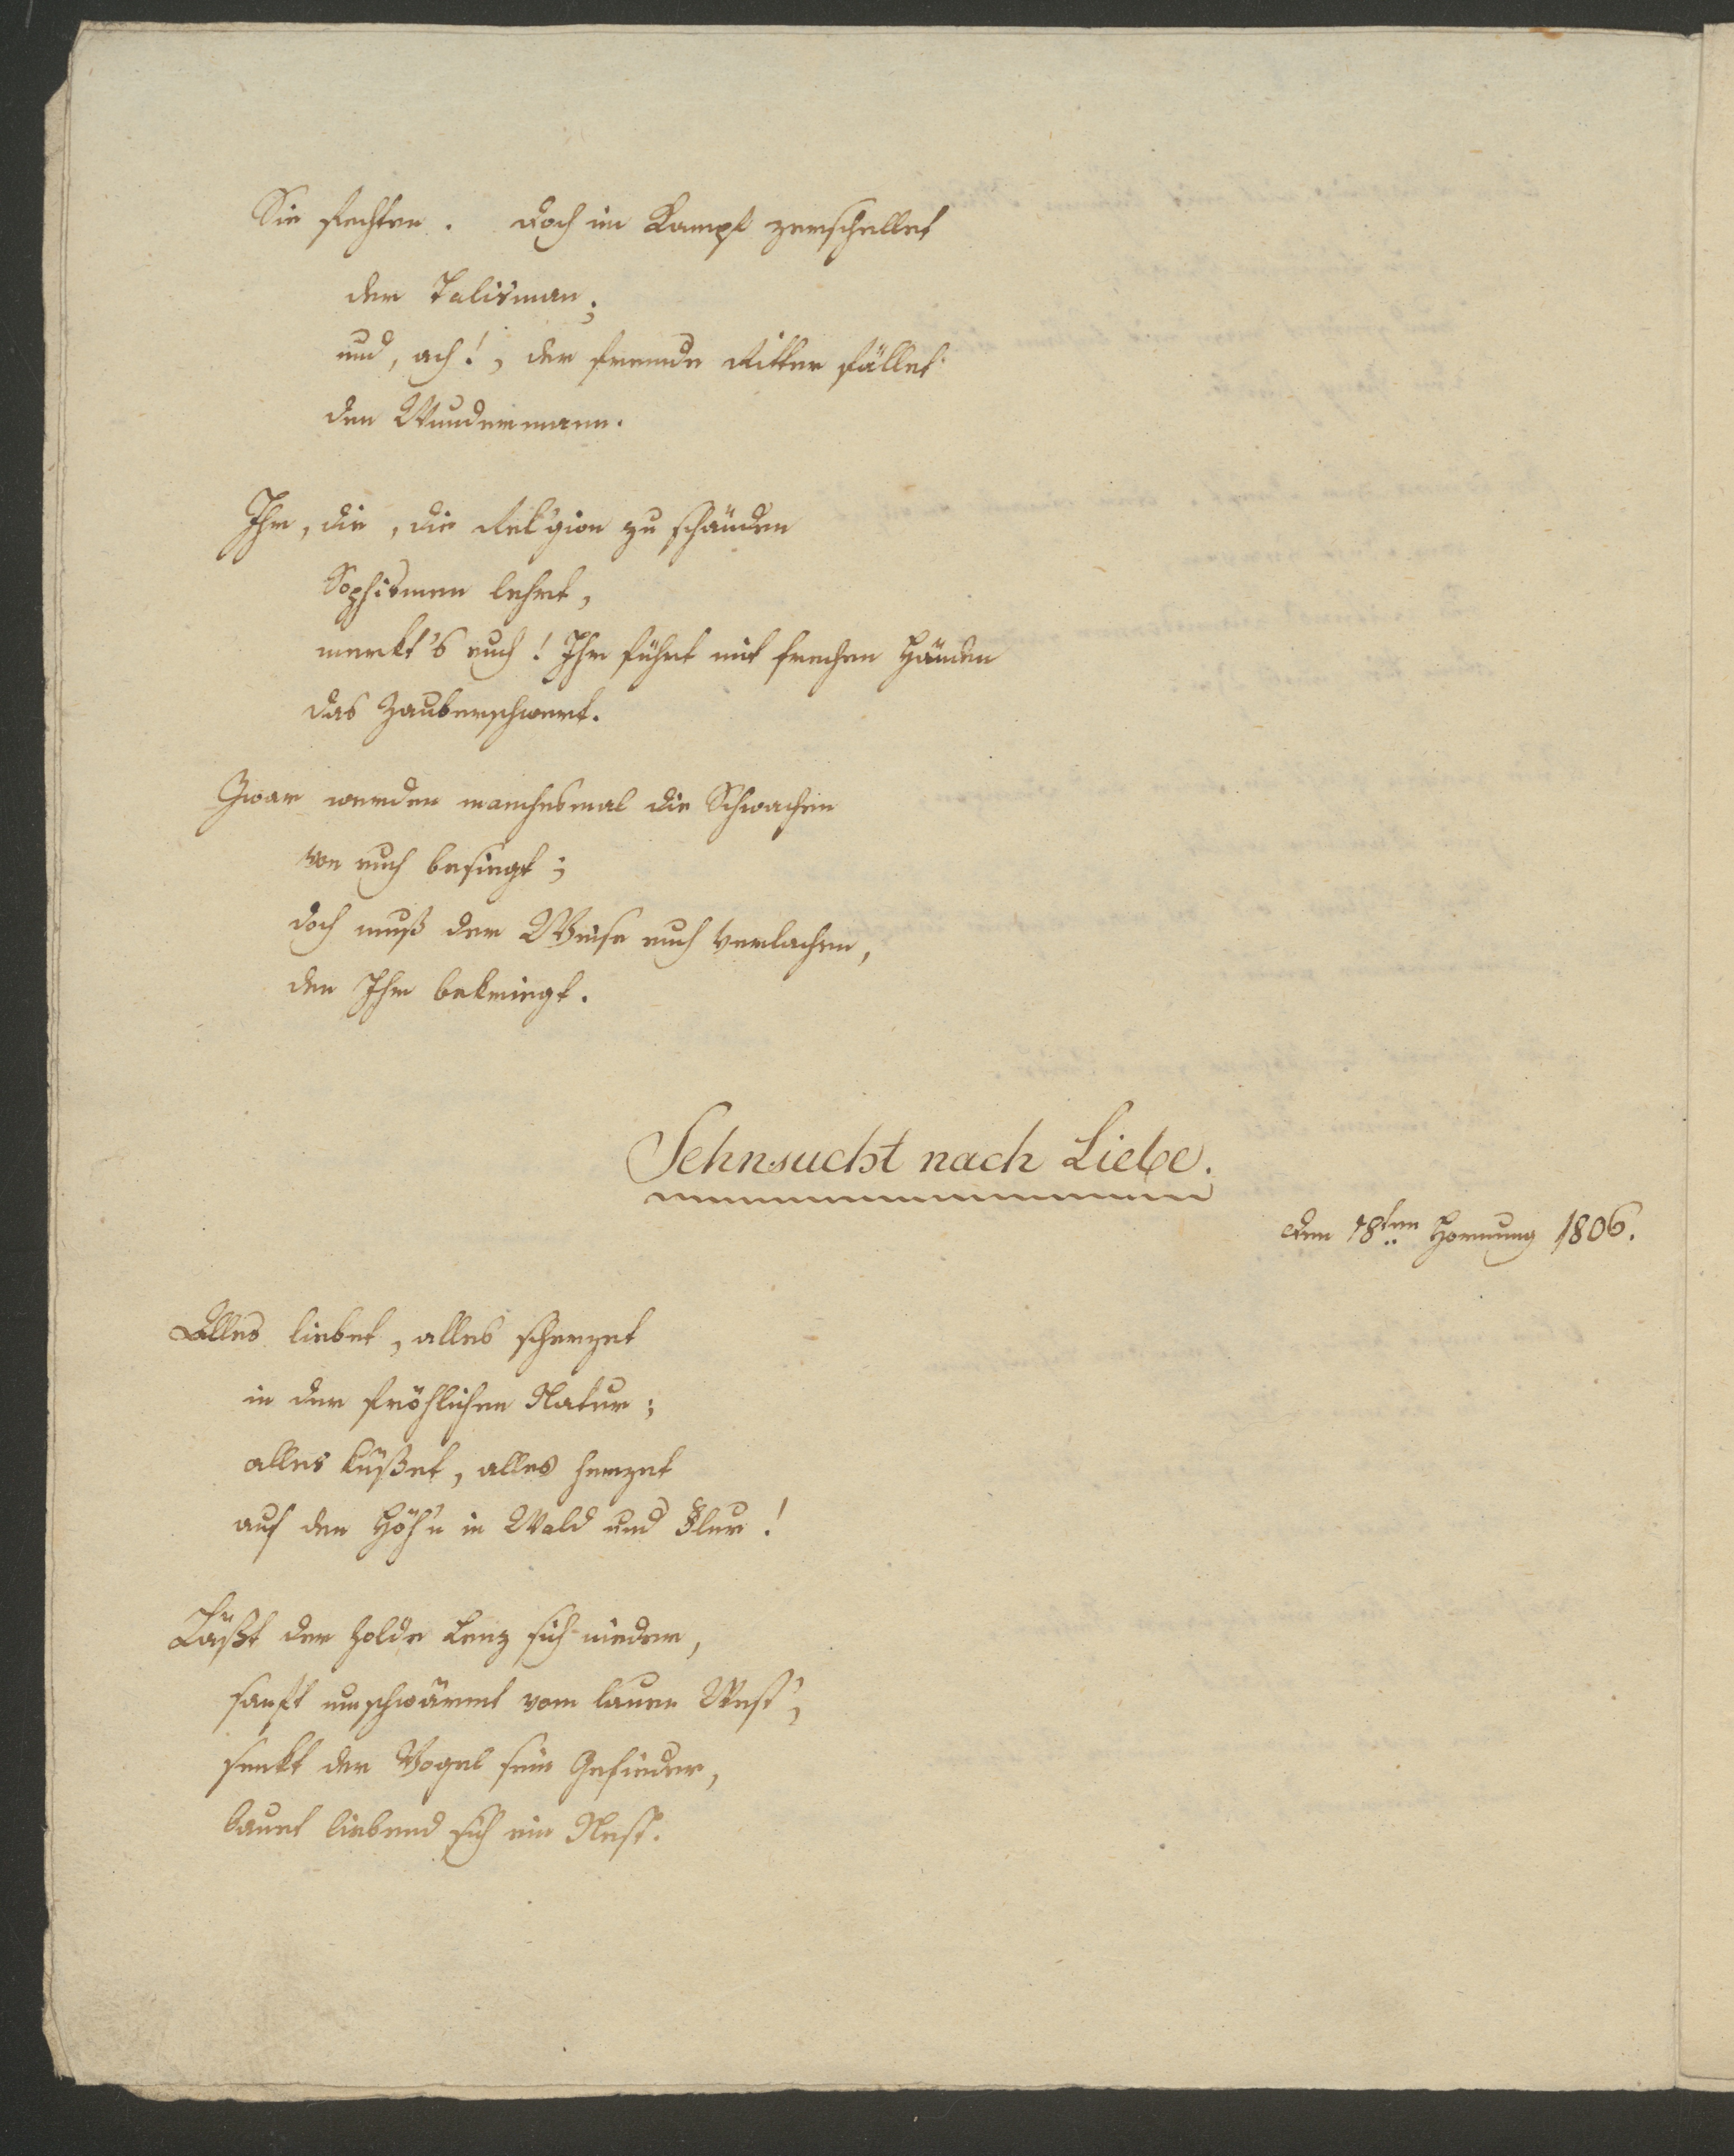 Sie fechten. Doch im Kampf zerschellet
der Talisman;
und, ach!, der fremde Ritter fället
den Wundermann.
Ihr, die, die Rel'gion zu schänden
Sophismen lehrt,
merkt's euch! Ihr führt mit frechen Händen
das Zauberschwert.
Zwar werden manchesmal die Schwachen
von euch besiegt;
doch muß der Weise euch verlachen,
den Ihr bekriegt.
Sehnsucht nach Liebe.
Den 18ten Hornung 1806.
Alles liebet, alles scherzet
in der fröhlichen Natur;
alles küßet, alles herzet
auf den Höh'n in Wald und Flur!
Läßt der holde Lenz sich nieder,
sanft umschwärmt vom lauen West',
senkt der Vogel sein Gefieder,
bauet liebend sich ein Nest.